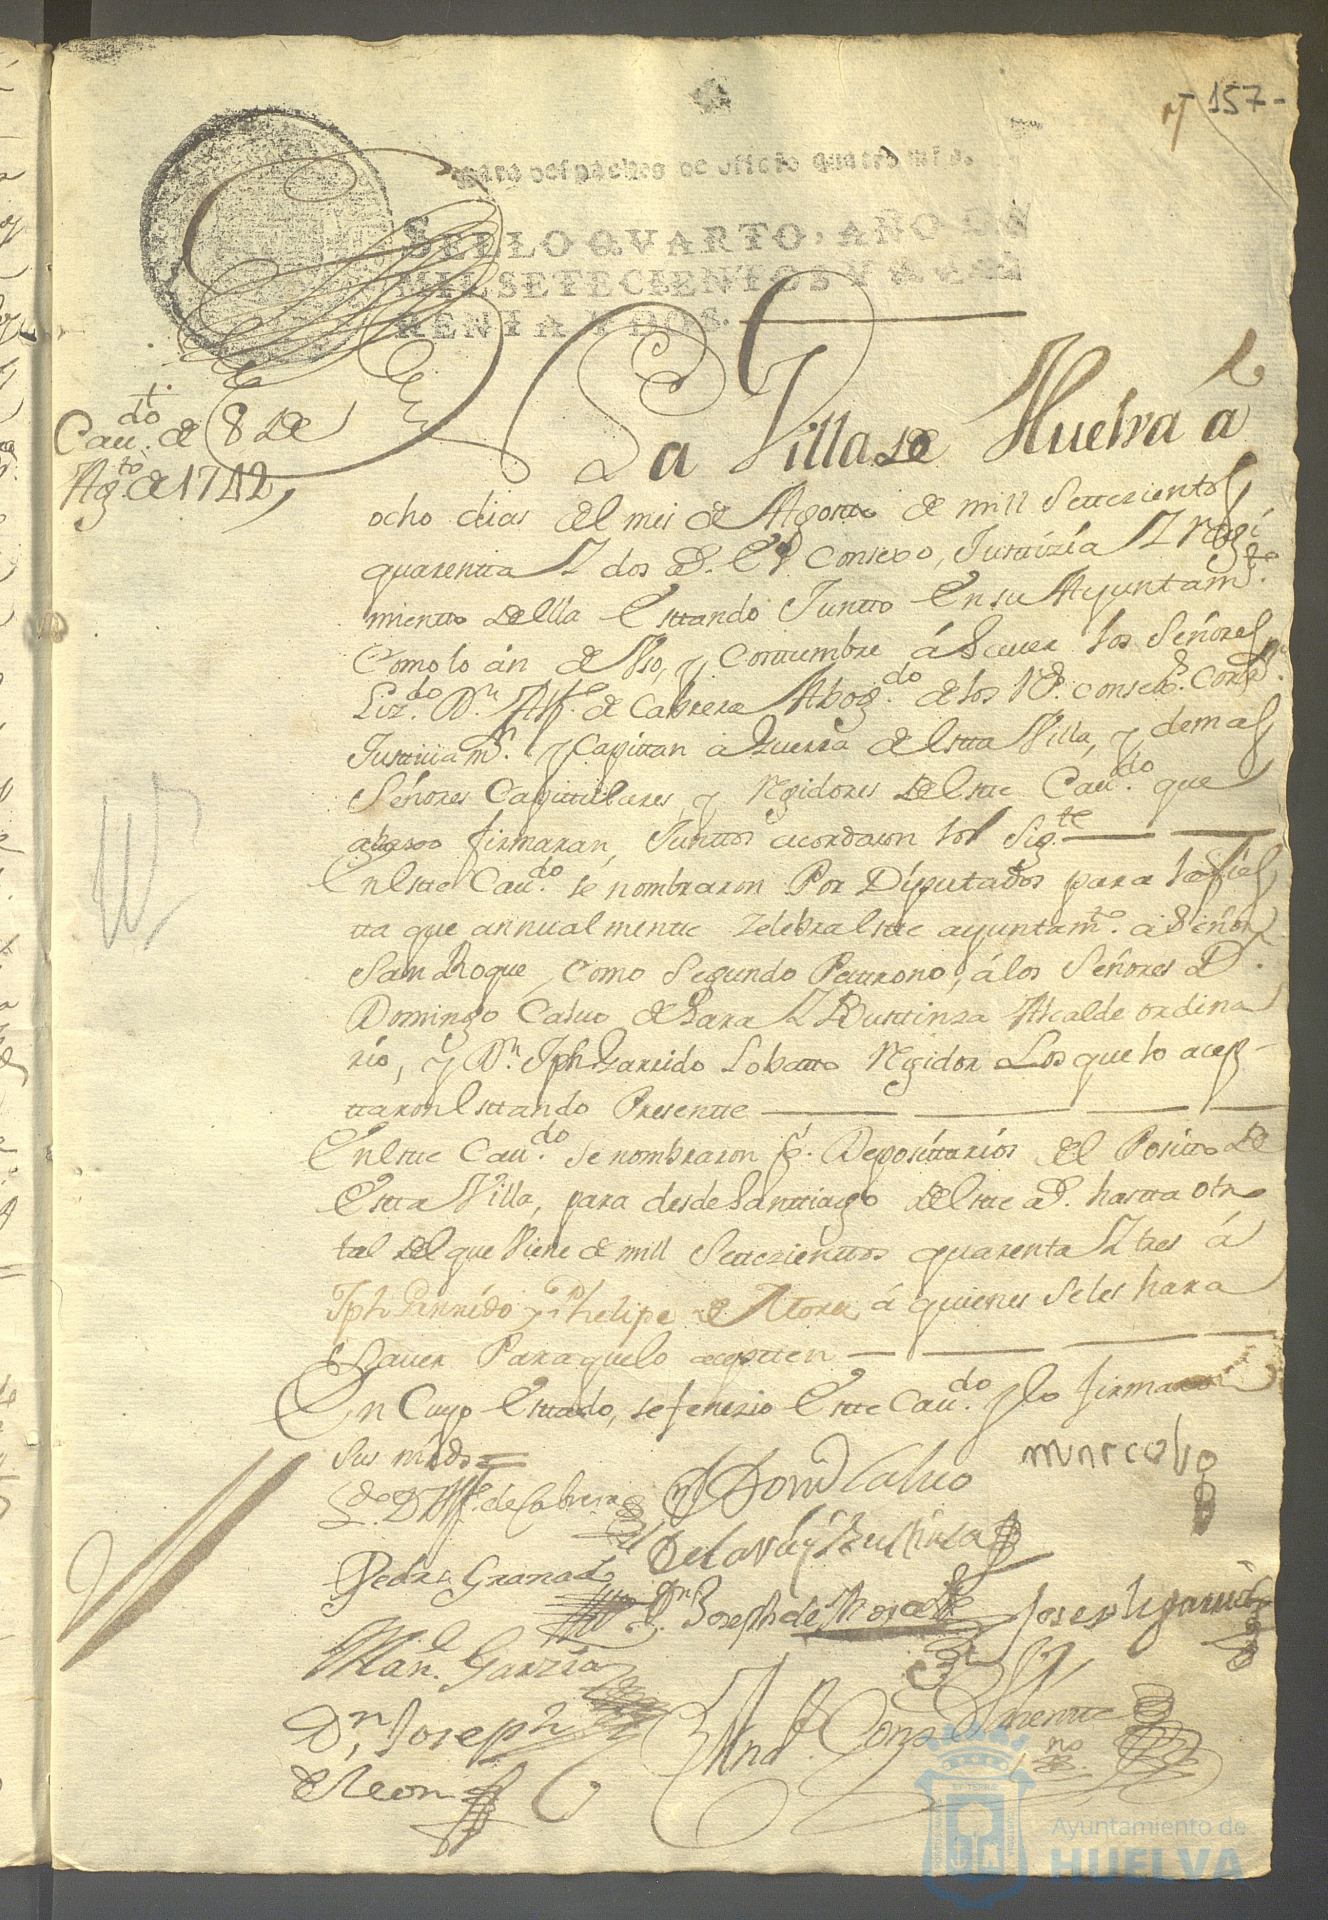 157-
para despachos de oficio quatro mrs.
SELLO QVARTO, AÑO DE
MIL SETECIENTOS Y QVA
RENTA Y DOS.
Cau.do de 8 de
Ag.to de 1742
La Villa de Huelva á
ocho dias del mes de Agosto de mill Settezientos
quarentta Y dos a.s El Consexo, Justtizia Y regi
mientto de ella esttando Juntto en su Ayuntam.to
Como lo án de Vso, y Costtumbre á Sauer los Señores
Liz.do D.n Alf.o de Cabrera Abog.do de los R.s consejos. Corr.or
Justticia m.r y Capittan a Guerra de estta Villa, y demas
Señores Capittulares, y Regidores de estte Cau.do que
abaxo firmaran, Junttos acordaron los sig.te
En estte Cau.do se nombraron Por Diputtados para la fies
tta que annualmentte zelebra estte ayuntam.to a Señor
San Roque, Como Segundo Pattrono, á los Señores D.n
Domingo Caluo de Lara Y Busttinza Alcalde ordina
rio, y D.n Jph Garrido Lobatto Regidor Los que lo acep-
ttaron Esttando Presentte
En estte Cau.do se nombraron p.r Deposittarios del Positto de
Estta Villa, para desde Santtiago de estte a.o hastta otro
tal del que Viene de mill Settezienttos quarenta Y tres á
Jph Garrido y Phelipe de á quienes se les hara
Sauer Para que lo acepten
En Cuyo Esttado, se fenezio Estte Cau.do y lo firmaron
sus mrds =
L.do D. Alf.o de Cabrera
D.n Dom.o Caluo
marcos
de Lara y Bustinza
Pedro Granado
D.n Joseph de
Joseph garrido
Man.l Garzia
D.n Joseph
de Leon
And.s Gonz
Ayuntamiento de
HUELVA